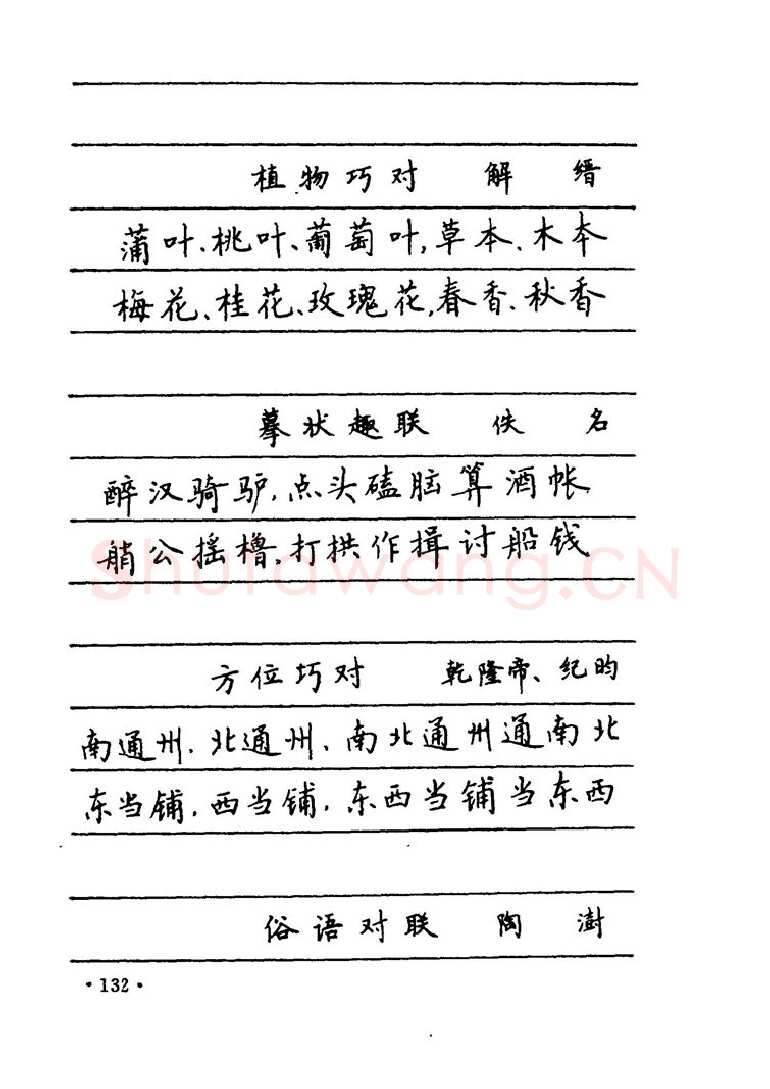 植物巧对 解缙
蒲叶、桃叶、葡萄叶,草本、木本
梅花、桂花、玫瑰花,春香、秋香
摹状趣联 佚名
醉汉骑驴,点头磕脑算酒帐
艄公摇橹,打拱作揖讨船钱
Shufawang.CN
方位巧对 乾隆帝、纪昀
南通州,北通州,南北通州通南北
东当铺,西当铺,东西当铺当东西
俗语对联 陶澍
·132·